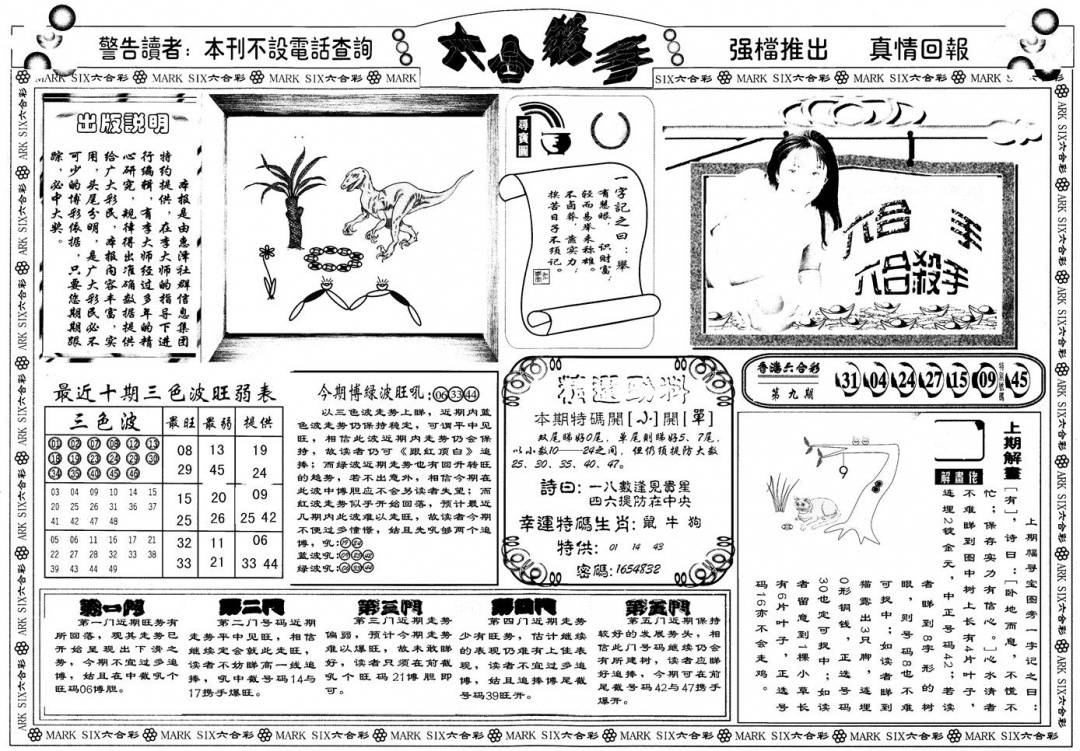 警告讀者：本刊不設電話查詢
六合殺手
强檔推出 真情回報
MARK SIX六合彩
出版説明
本报是由惠泽社群信息集团
特约提供，在李大师的指导下进
行编辑，有李大师经过多年的精
心研究，规律得出准确数据提供
给广大彩民，本报内容丰富，实
用，头尾分明，是广大彩民必不
可少的博彩依据，只要您期期跟
踪，必中大奖。
一字記之曰：舉
有慧眼，识财富，
轻而易举来称雄。
不卤莽，靠实力，
挨苦日子不须记。
六合 手
六合殺手
最近十期三色波旺弱表
三色波 最旺 最弱 提供
01 02 07 08 12 13
18 19 23 24 29 30
34 35 40 45 46
08 13 19
29 45 24
03 04 09 10 14 15
20 25 26 31 36 37
41 42 47 48
15 20 09
25 26 25 42
05 06 11 16 17 21
22 27 28 32 33 38
39 43 44 49
32 11 06
33 21 33 44
今期博绿波旺吼：06 33 44
以三色波走势上睇，近期内蓝
色波走势仍保持稳定，可谓平中见
旺，相信此波近期内走势仍会保
持，故读者仍可《跟红顶白》追
捧；而绿波近期走势也有回升转旺
的趋势，若不出意外，相信今期在
此波中博胆应不会另读者失望；而
红波走势似乎开始回落，预计最近
几期内此波难以走旺，故读者今期
不便过多憧憬，姑且先吼够两个追
博，吼：19 24
蓝波吼：09 25 42
绿波吼：06 33 44
精選動料
本期特碼開［小］開［單］
双尾睇好0尾，单尾则睇好5、7尾，
以小数10——24之间，但仍须提防大数
25、30、35、40、47。
詩曰：一八數逢見貴星
四六提防在中央
幸運特碼生肖：鼠 牛 狗
特供：01 14 43
密碼：1654832
香港六合彩
第九期
31 04 24 27 15 09
特别號碼
45
上期解畫
解畫佬
上期幅寻宝图旁一字记之曰：
［有］，诗曰：［卧地而息，不慌不
忙；保存实力有信心。］心水清者
不难睇到图中树上长有4片叶子，
连埋2锭金元，中正号码42；若读
者睇到8字形的树
眼，则号码8也不难
可捉中；如读者睇到
猫露出3只脚，连埋
0形铜钱，正选号码
30也定可捉中；如读
者留意到1棵小草长
有6片叶子，正选号
码16亦不会走鸡。
第一門
第一门近期旺势有
所回落，观其走势已
开始呈现出下滑之
势，今期不宜过多追
博，姑且在中截吼个
旺码06博胆。
第二門
第二门号码近期
走势平中见旺，相信
继续定会就此走旺，
读者不妨睇高一线追
捧，吼中截号码14与
17携手爆旺。
第三門
第三门近期走势
偏弱，预计今期走势
难以爆旺，故未敢睇
好，读者只须在前截
吼个旺码21博胆即
可。
第四門
第四门近期走势
少有旺势，估计继续
的表现仍难有上佳表
现，读者不宜过多追
捧，姑且追捧博尾截
号码39旺开。
第五門
第五门近期保持
较好的发展势头，相
信此门号码继续仍会
有所建树，读者应睇
好追捧，今期可在前
尾截号码42与47携手
爆开。
MARK SIX六合彩